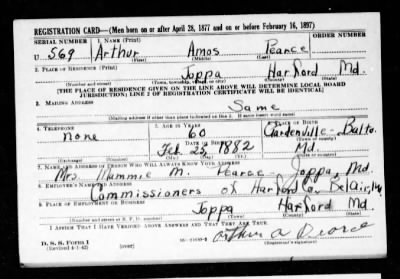 REGISTRATION CARD—(Men born on or after April 28, 1877 and on or before February 16, 1897)
SERIAL NUMBER 1. NAME (Print)
U 569 Arthur Amos Pearce
(First) (Middle) (Last)
2. PLACE OF RESIDENCE (Print)
Joppa Harford Md.
(Number and street) (Town, township, village, or city) (County) (State)
[THE PLACE OF RESIDENCE GIVEN ON THE LINE ABOVE WILL DETERMINE LOCAL BOARD
JURISDICTION; LINE 2 OF REGISTRATION CERTIFICATE WILL BE IDENTICAL]
3. MAILING ADDRESS
Same
(Mailing address if other than place indicated on line 2. If same insert word same)
4. TELEPHONE 5. AGE IN YEARS 6. PLACE OF BIRTH
none 60 Gardenville - Balto.
DATE OF BIRTH (Town or county)
Feb 23 1882 Md.
(Exchange) (Number) (Mo.) (Day) (Yr.) (State or country)
7. NAME AND ADDRESS OF PERSON WHO WILL ALWAYS KNOW YOUR ADDRESS
Mrs. Mammie M. Pearce - Joppa, Md.
8. EMPLOYER'S NAME AND ADDRESS
Commissioners of Harford Co. Belair, Md
9. PLACE OF EMPLOYMENT OR BUSINESS
Joppa Harford Md.
(Number and street or R. F. D. number) (Town) (County) (State)
I AFFIRM THAT I HAVE VERIFIED ABOVE ANSWERS AND THAT THEY ARE TRUE.
Arthur A Pearce
D. S. S. Form 1
(Revised 4-1-42) (over) (Registrant's signature)